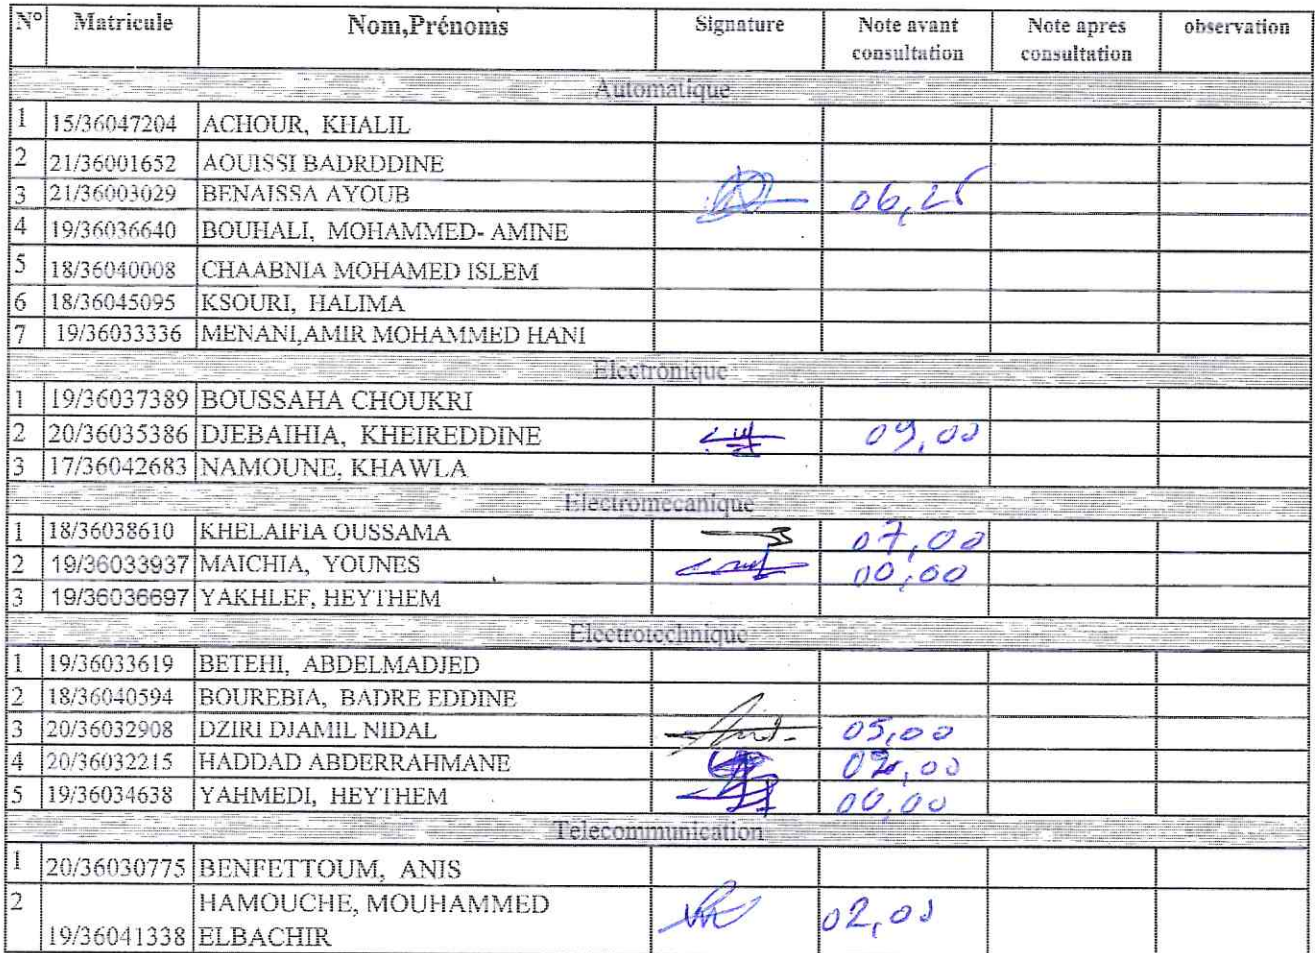 N° Matricule Nom,Prénoms Signature Note avant consultation Note apres consultation observation
Automatique
1 15/36047204 ACHOUR, KHALIL
2 21/36001652 AOUISSI BADRDDINE
3 21/36003029 BENAISSA AYOUB 06,25
4 19/36036640 BOUHALI, MOHAMMED- AMINE
5 18/36040008 CHAABNIA MOHAMED ISLEM
6 18/36045095 KSOURI, HALIMA
7 19/36033336 MENANI,AMIR MOHAMMED HANI
Electronique
1 19/36037389 BOUSSAHA CHOUKRI
2 20/36035386 DJEBAIHIA, KHEIREDDINE 09,00
3 17/36042683 NAMOUNE, KHAWLA
Electromecanique
1 18/36038610 KHELAIFIA OUSSAMA 07,00
2 19/36033937 MAICHIA, YOUNES 00,00
3 19/36036697 YAKHLEF, HEYTHEM
Electrotechnique
1 19/36033619 BETEHI, ABDELMADJED
2 18/36040594 BOUREBIA, BADRE EDDINE
3 20/36032908 DZIRI DJAMIL NIDAL 05,00
4 20/36032215 HADDAD ABDERRAHMANE
5 19/36034638 YAHMEDI, HEYTHEM 00,00
Telecommunication
1 20/36030775 BENFETTOUM, ANIS
2 HAMOUCHE, MOUHAMMED
19/36041338 ELBACHIR 02,00